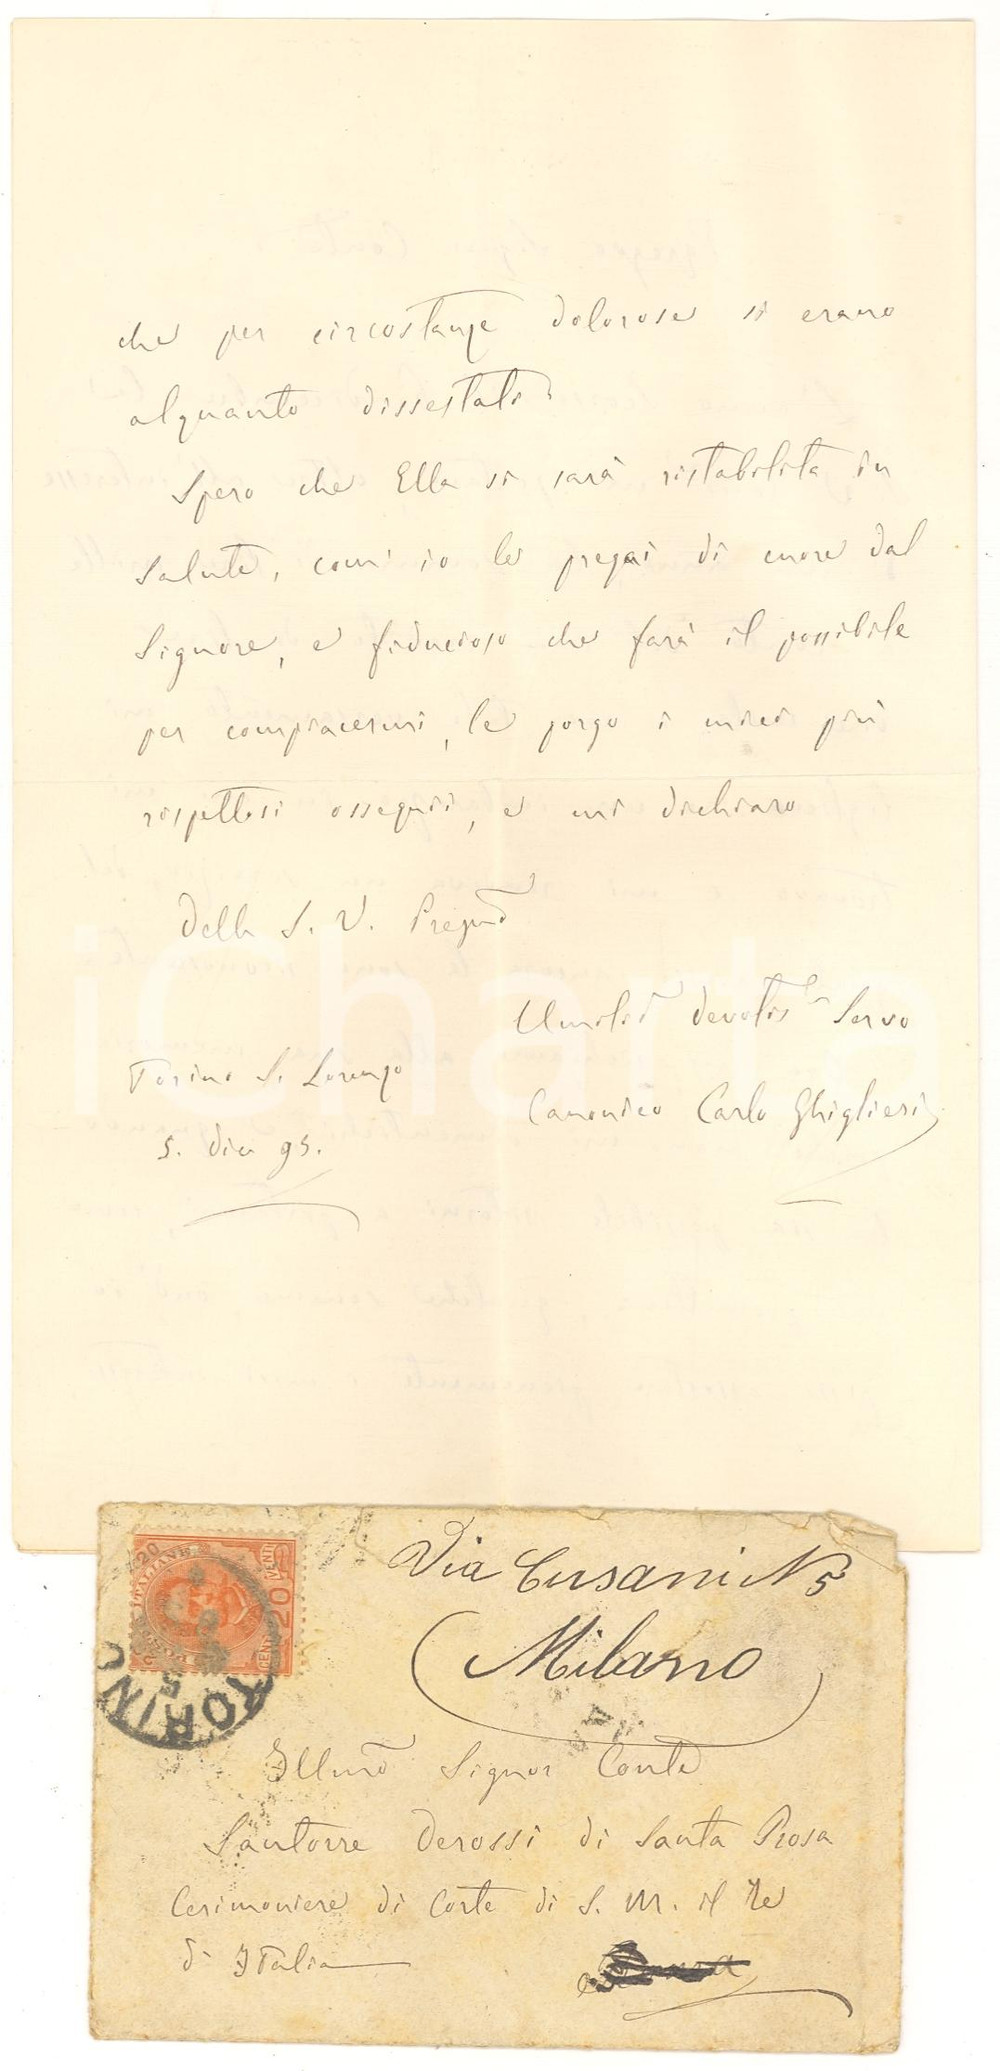 che per circostanze dolorose si erano
alquanto dissestati.
Spero che Ella si sarà ristabilita in
salute, com' io le pregai di cuore dal
Signore, e fiducioso che farà il possibile
per compiacermi, le porgo i miei più
rispettosi ossequii, e mi dichiaro
Della S. V. Pregmā
Umilis devotis Servo
Torino S. Lorenzo
Canonico Carlo Ghiglieri
5. dic 95.
iCharta
Via Cusani N 5
Milano
20
CENTI 20 CENTI
TORINO
5
Illmō Signor Conte
Santorre Derossi di Santa Rosa
Cerimoniere di Corte di S. M. il Re
d' Italia